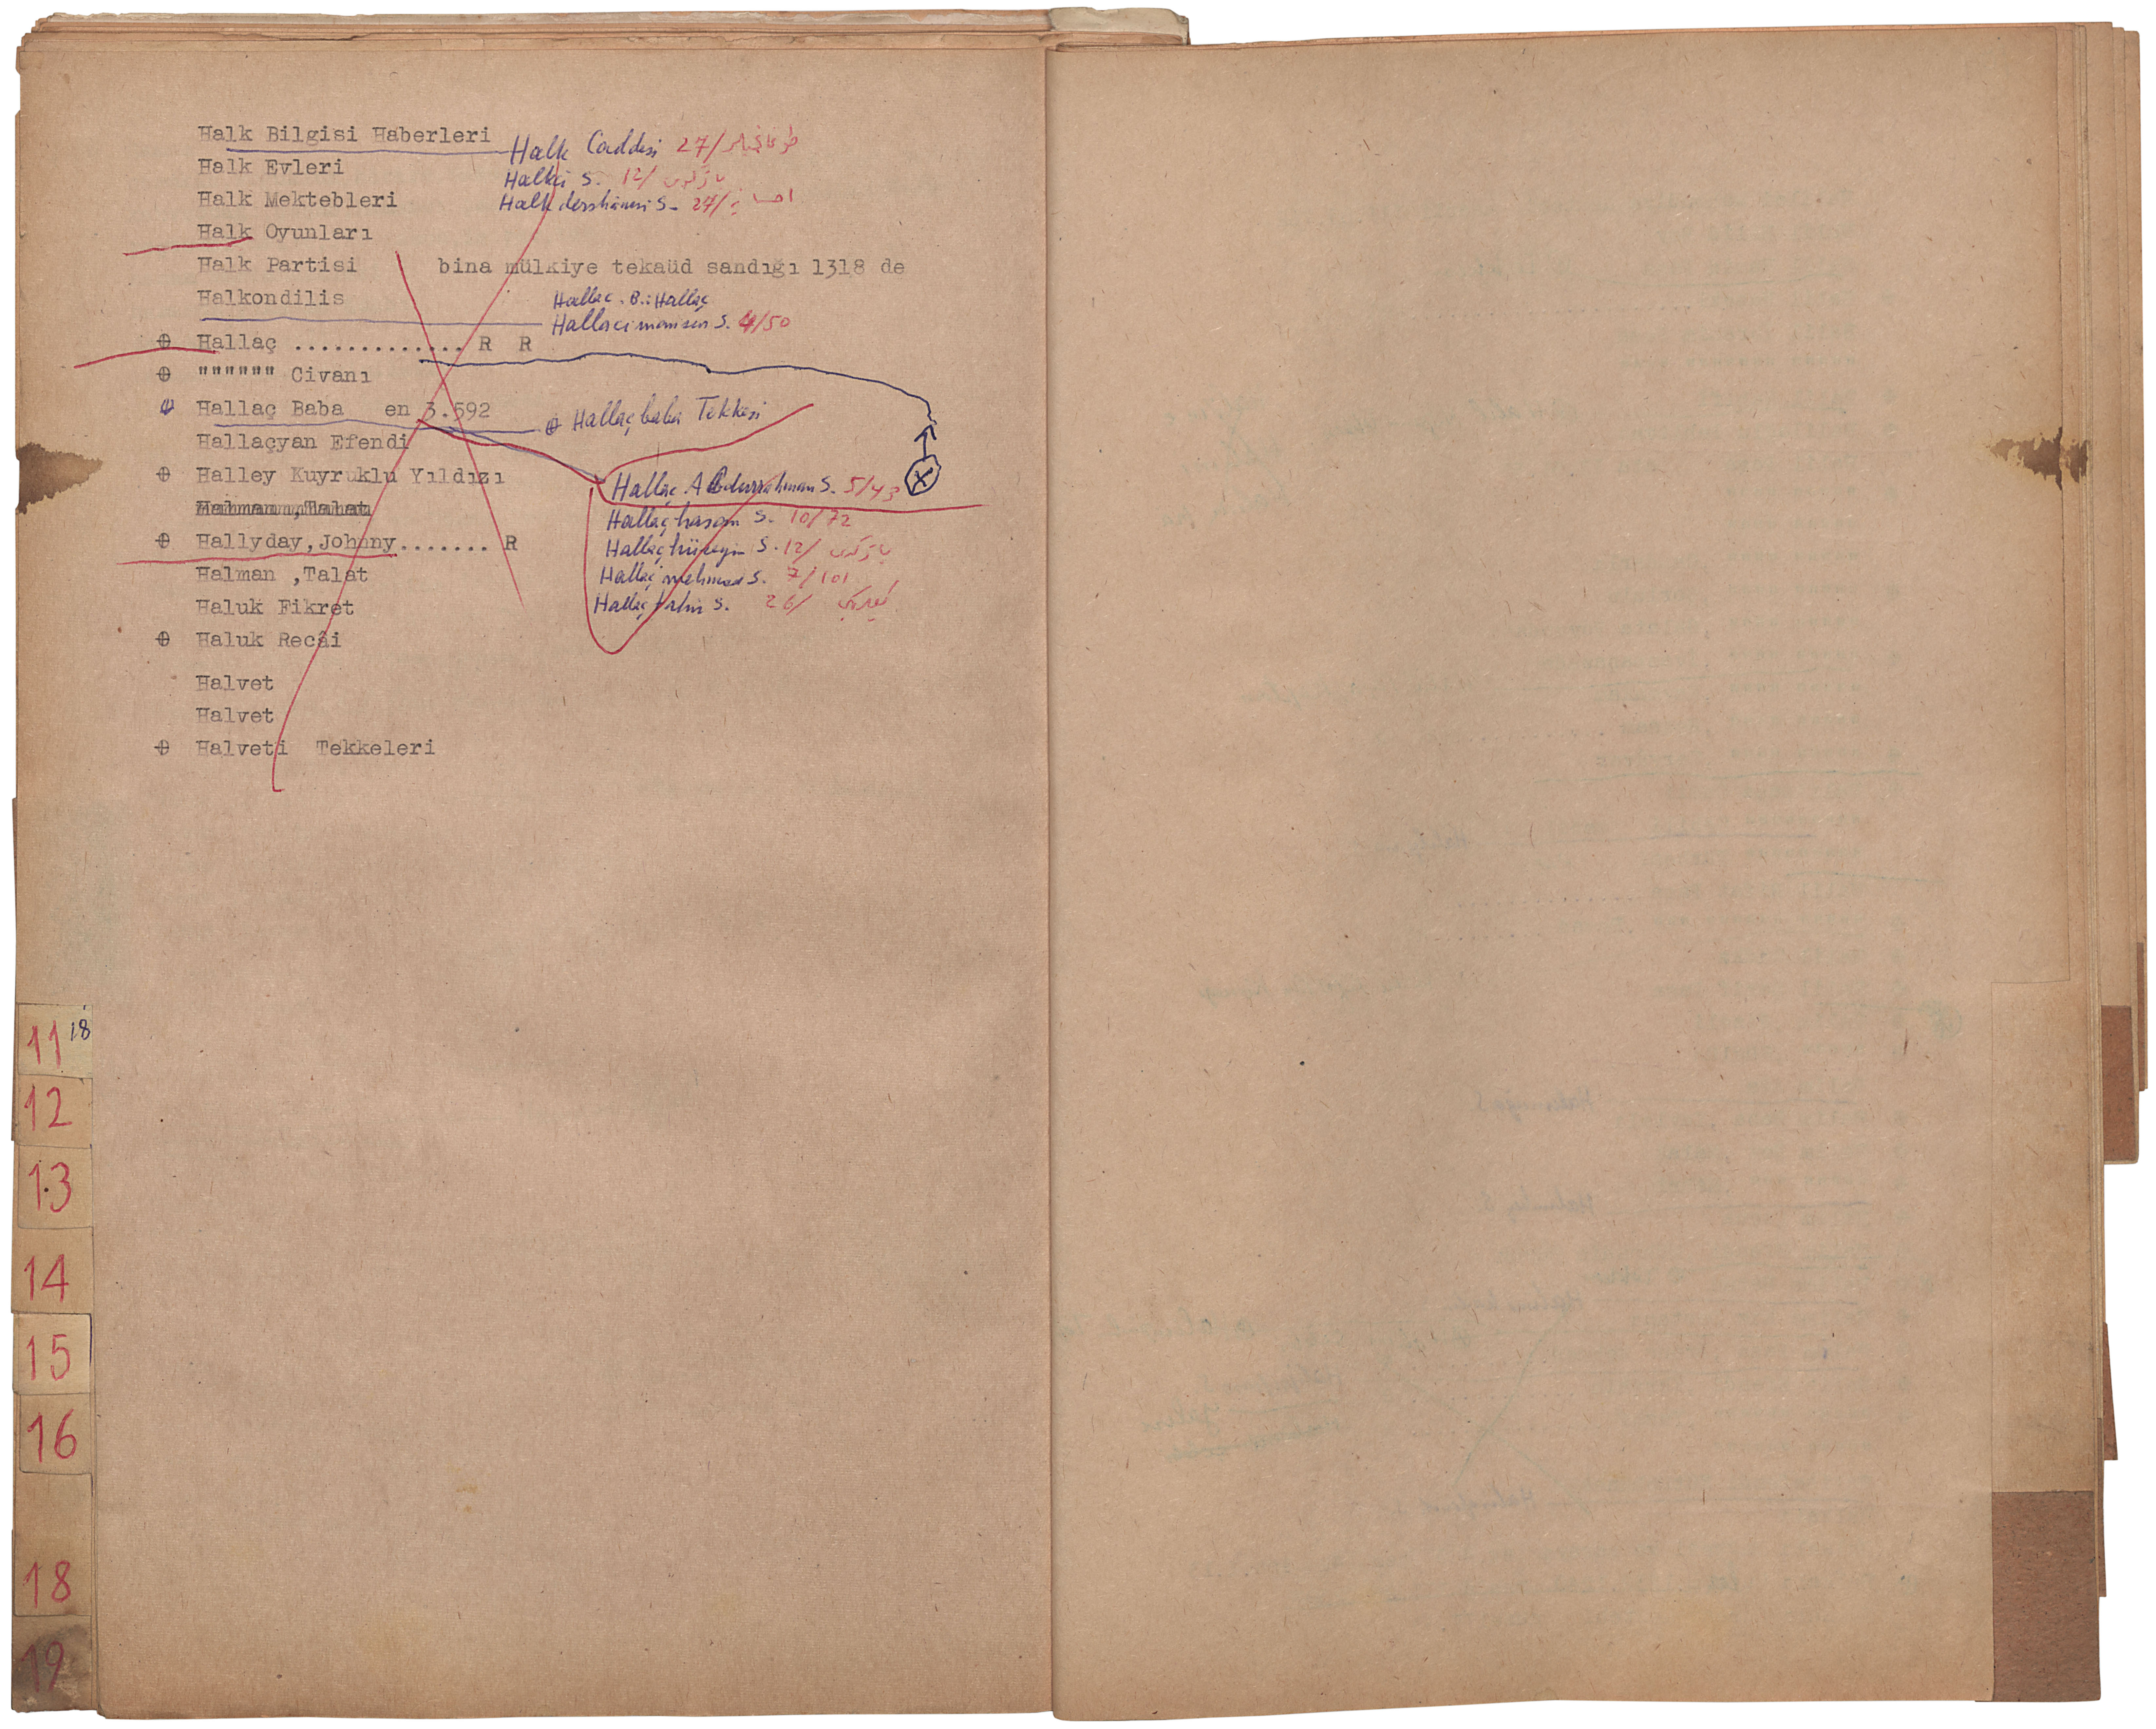 Halk Bilgisi Haberleri
Halk Caddesi 27/
Halk Evleri
Halkçı S. 12/
Halk Mektebleri
Halk dershanesi S. 27/
Halk Oyunları
Halk Partisi bina mülkiye tekaüd sandığı 1318 de
Halkondilis
Hallac. B.: Hallaç
Hallacımansur S. 4/50
Hallaç ............. R R
"""""" Civanı
Hallaç Baba en 3.592
Hallaçbaba Tekkesi
Hallaçyan Efendi
Halley Kuyruklu Yıldızı
Hallaç Abdurrahman S. 5/43
Halman ,Talat
Hallaçhasan S. 10/72
Hallyday,Johnny....... R
Hallaçhüseyin S. 12/
Halman ,Talat
Hallaçmehmed S. 7/101
Haluk Fikret
Hallaç S. 26/
Haluk Recâi
Halvet
Halvet
Halveti Tekkeleri
11 18
12
13
14
15
16
18
19